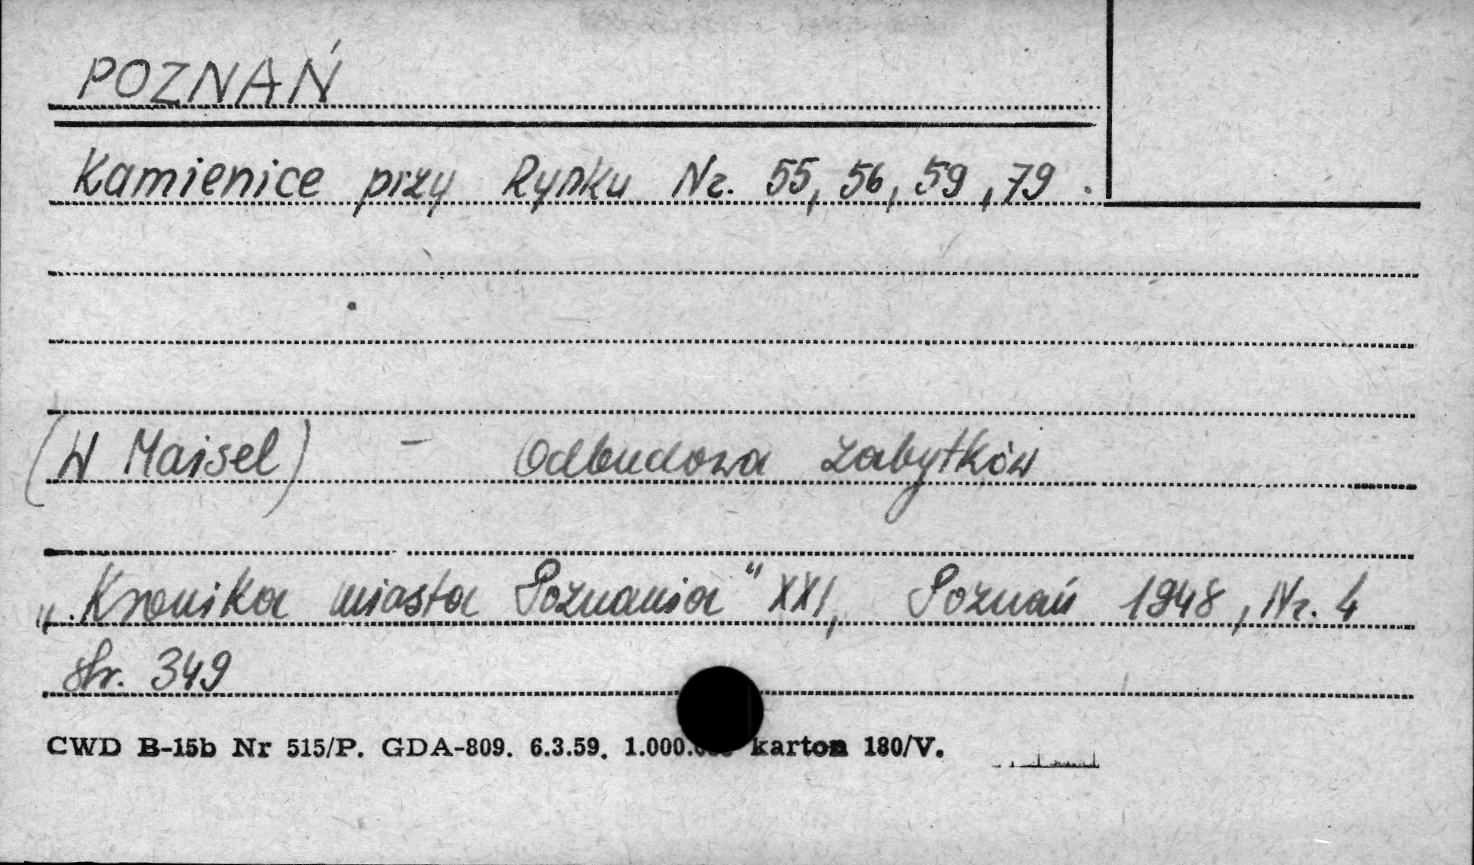 POZNAŃ
Kamienice przy Rynku Nr. 55, 56, 59, 79.
(W Maisel) - Odbudowa zabytków
„Kronika miasta Poznania" XXI, Poznań 1948, Nr. 4
str. 349
CWD B-15b Nr 515/P. GDA-809. 6.3.59. 1.000. karton 180/V.